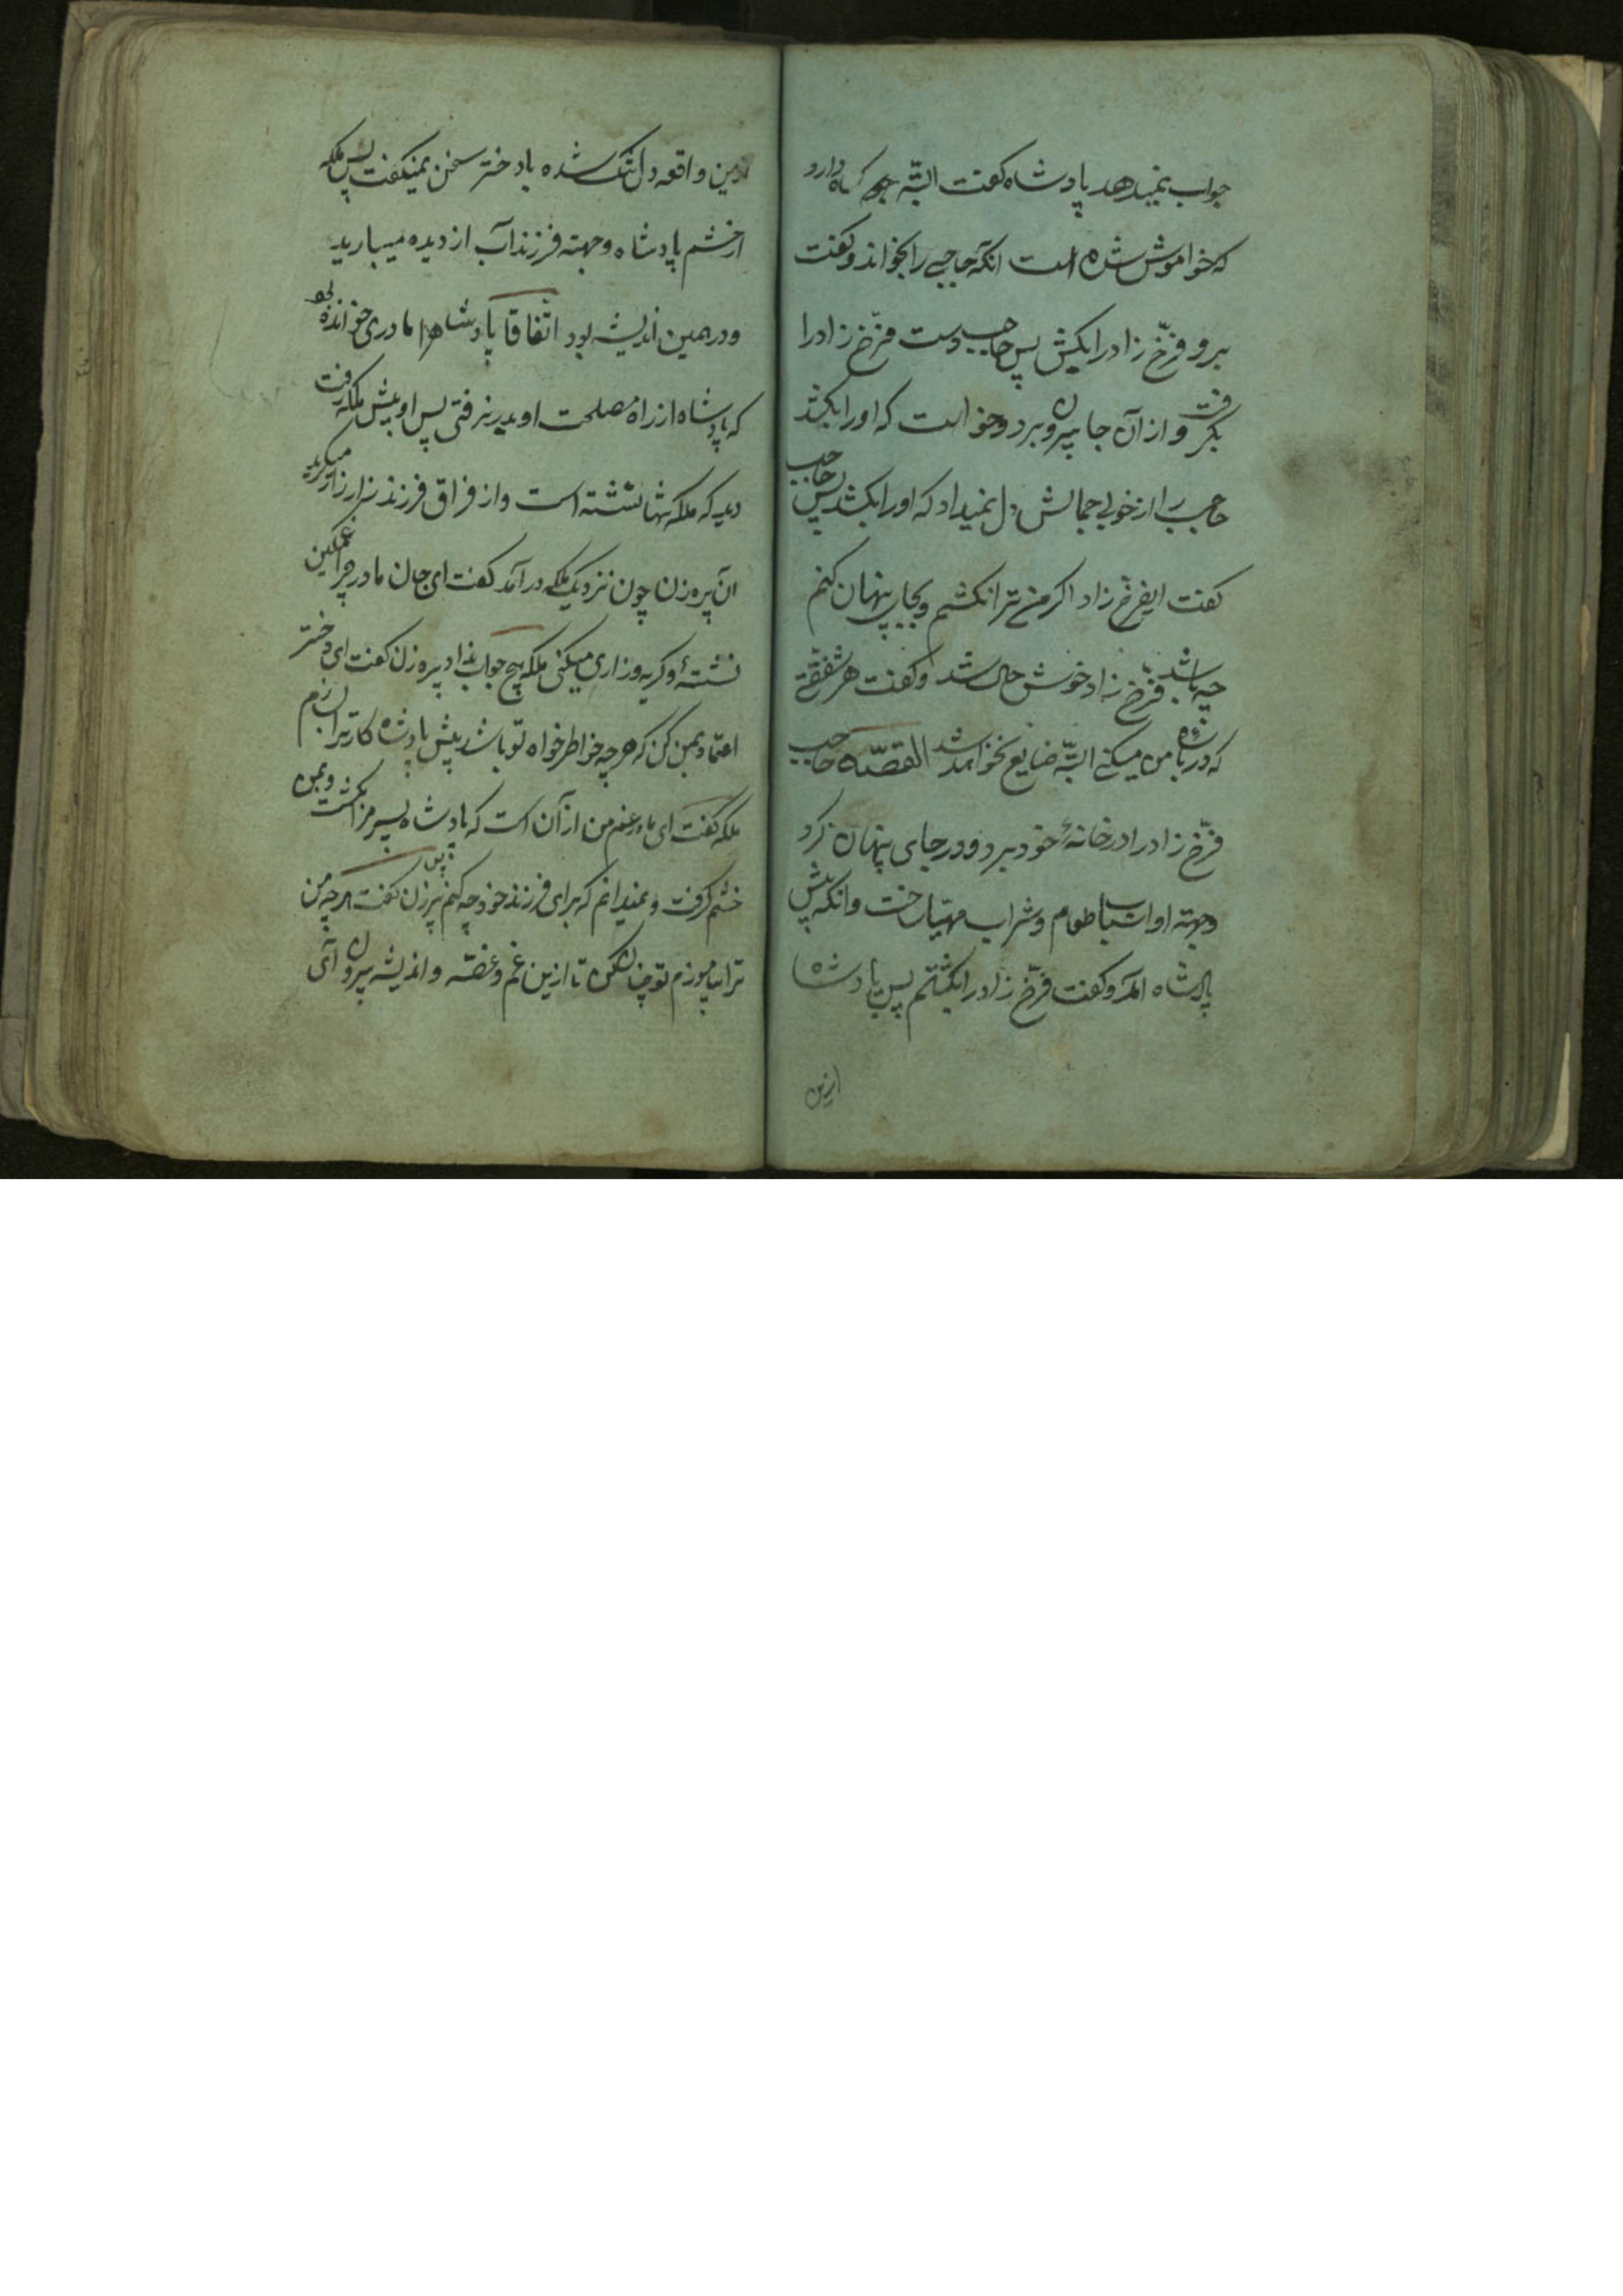 جواب نمیدهد پادشاه کفت البتّه کناه دارد
که خواموش شده است انکه حاجبی را بخواند و کفت
برو فرّخ زاد را بکش پس حاجب دست فرّخ زاد را
بکرفت و از آن جا بیرون برد و خواست که اورا بکشد
حاجب را از خوبی جمالش دل نمیداد که اورا بکشد پس حاجب
کفت ایفرّخ زاد اکر من ترا نکشم و بجای پنهان کنم
چه باشد فرّخ زاد خوش حال شد و کفت هر شفقتی
که در باره من میکنی البتّه ضایع نخواهد شد القصّه حاجب
فرّخ زاد را در خانهٔ خود برد و در جای پنهان کرد
وجهته او اسباب طعام و شراب مهیّا ساخت وانکه پیش
پادشاه آمد و کفت فرّخ زاد را بکشتم پس پادشاه
ازین
ازین واقعه دل تنک شده با دختر سخن نمیکفت پس ملکه
از خشم پادشاه وجهته فرزند آب از دیده میبارید
و در همین اندیشه بود اتّفاقا پادشاه را مادری خوانده بود
که پادشاه از راه مصلحت او بدر نرفتی پس او پیش ملکه رفت
دید که ملکه تنها نشسته است و از فراق فرزند زار زار میکرید
آن پیره زن چون نزدیک ملکه در آمد کفت ای جان مادر چرا غمکین
نشستهٔ و کریه و زاری میکنی ملکه هیچ جواب نداد پیره زن کفت ای دختر
اعتماد بمن کن که هر چه خواطر خواه تو باشد پیش پادشاه کار ترا بسازم
ملکه کفت ای مادر غم من از آن است که پادشاه پسر مرا بکشت و بمن
خشم کرفت و نمیدانم که برای فرزند خود چه کنم پس پیر زن کفت هر چه من
ترا بیاموزم تو چنان کن تا ازین غم و غصّه و اندیشه بیرون آی